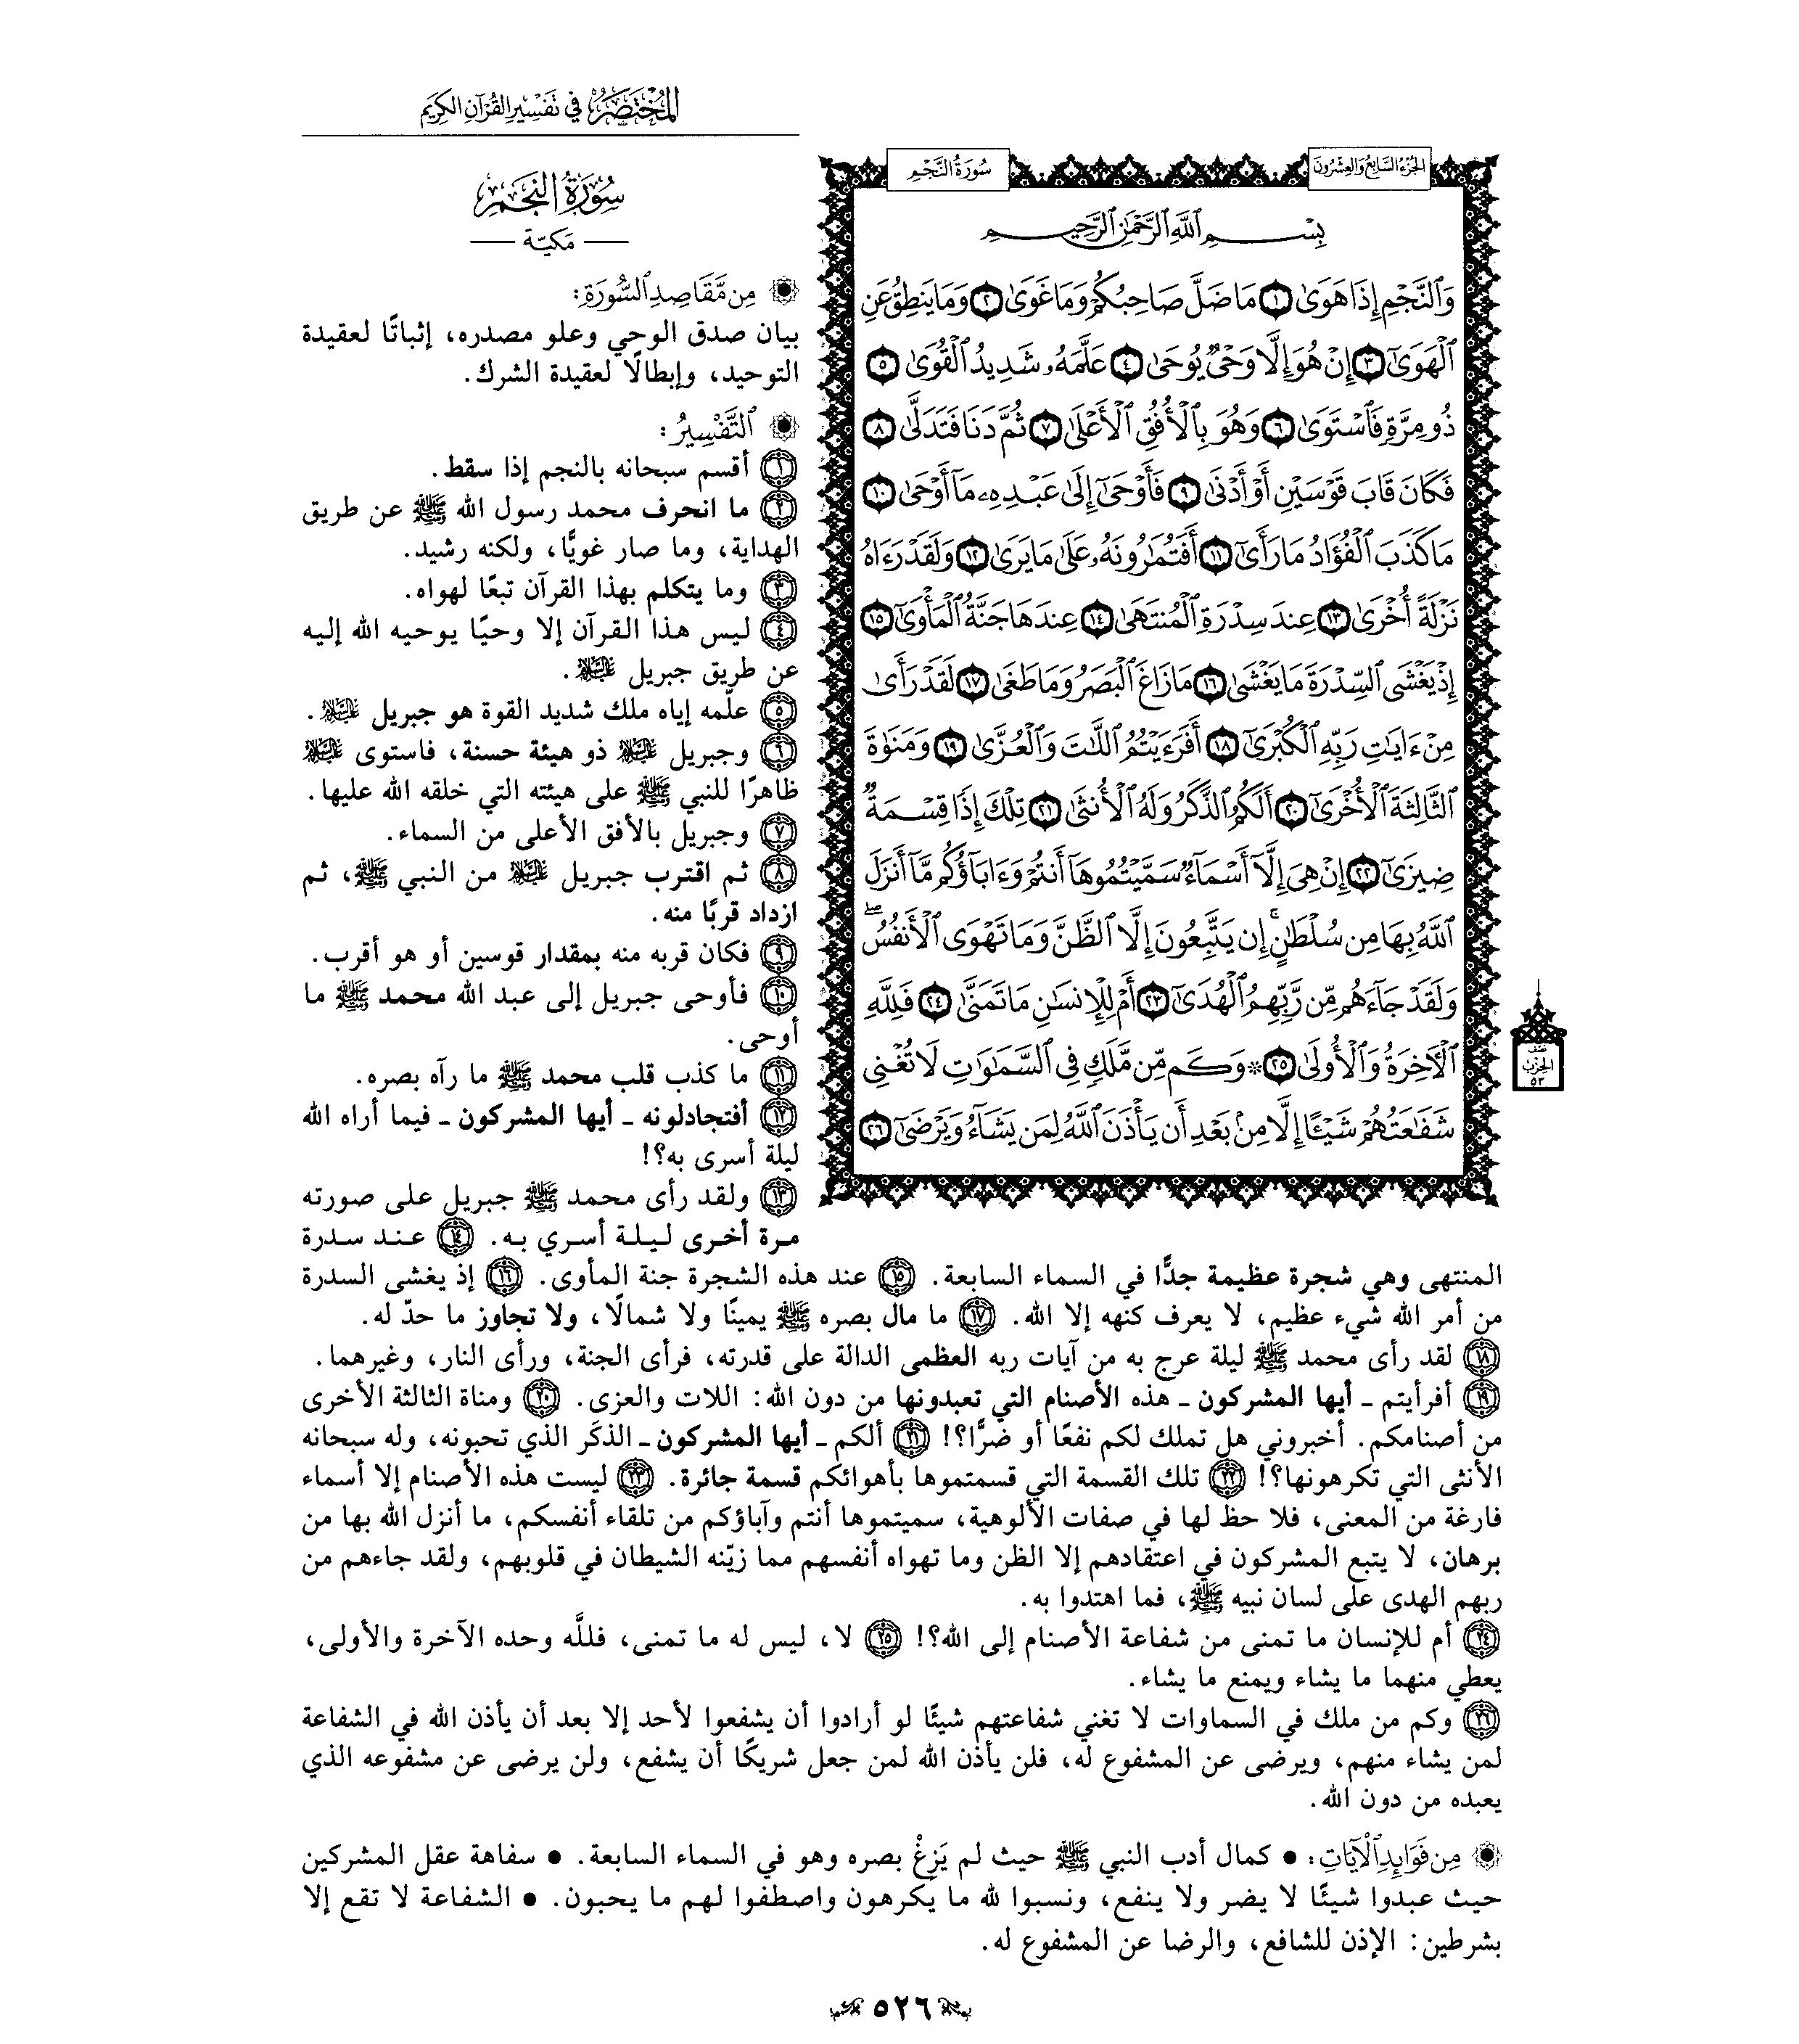 المختصر في تفسير القرآن الكريم
الجزء السابع والعشرون
سورة النجم
بِسْمِ ٱللَّهِ ٱلرَّحْمَٰنِ ٱلرَّحِيمِ
وَٱلنَّجْمِ إِذَا هَوَىٰ ١ مَا ضَلَّ صَاحِبُكُمْ وَمَا غَوَىٰ ٢ وَمَا يَنطِقُ عَنِ
ٱلْهَوَىٰٓ ٣ إِنْ هُوَ إِلَّا وَحْىٌ يُوحَىٰ ٤ عَلَّمَهُۥ شَدِيدُ ٱلْقُوَىٰ ٥
ذُو مِرَّةٍ فَٱسْتَوَىٰ ٦ وَهُوَ بِٱلْأُفُقِ ٱلْأَعْلَىٰ ٧ ثُمَّ دَنَا فَتَدَلَّىٰ ٨
فَكَانَ قَابَ قَوْسَيْنِ أَوْ أَدْنَىٰ ٩ فَأَوْحَىٰٓ إِلَىٰ عَبْدِهِۦ مَآ أَوْحَىٰ ١٠
مَا كَذَبَ ٱلْفُؤَادُ مَا رَأَىٰٓ ١١ أَفَتُمَٰرُونَهُۥ عَلَىٰ مَا يَرَىٰ ١٢ وَلَقَدْ رَءَاهُ
نَزْلَةً أُخْرَىٰ ١٣ عِندَ سِدْرَةِ ٱلْمُنتَهَىٰ ١٤ عِندَهَا جَنَّةُ ٱلْمَأْوَىٰٓ ١٥
إِذْ يَغْشَى ٱلسِّدْرَةَ مَا يَغْشَىٰ ١٦ مَا زَاغَ ٱلْبَصَرُ وَمَا طَغَىٰ ١٧ لَقَدْ رَأَىٰ
مِنْ ءَايَٰتِ رَبِّهِ ٱلْكُبْرَىٰٓ ١٨ أَفَرَءَيْتُمُ ٱللَّٰتَ وَٱلْعُزَّىٰ ١٩ وَمَنَوٰةَ
ٱلثَّالِثَةَ ٱلْأُخْرَىٰٓ ٢٠ أَلَكُمُ ٱلذَّكَرُ وَلَهُ ٱلْأُنثَىٰ ٢١ تِلْكَ إِذًا قِسْمَةٌ
ضِيزَىٰٓ ٢٢ إِنْ هِىَ إِلَّآ أَسْمَآءٌ سَمَّيْتُمُوهَآ أَنتُمْ وَءَابَآؤُكُم مَّآ أَنزَلَ
ٱللَّهُ بِهَا مِن سُلْطَٰنٍ ۚ إِن يَتَّبِعُونَ إِلَّا ٱلظَّنَّ وَمَا تَهْوَى ٱلْأَنفُسُ ۖ
وَلَقَدْ جَآءَهُم مِّن رَّبِّهِمُ ٱلْهُدَىٰٓ ٢٣ أَمْ لِلْإِنسَٰنِ مَا تَمَنَّىٰ ٢٤ فَلِلَّهِ
ٱلْءَاخِرَةُ وَٱلْأُولَىٰ ٢٥ ۞ وَكَم مِّن مَّلَكٍ فِى ٱلسَّمَٰوَٰتِ لَا تُغْنِى
شَفَٰعَتُهُمْ شَيْـًٔا إِلَّا مِنۢ بَعْدِ أَن يَأْذَنَ ٱللَّهُ لِمَن يَشَآءُ وَيَرْضَىٰٓ ٢٦
الحزب
٥٣
سورة النجم
مكيّة
من مقاصد السورة:
بيان صدق الوحي وعلو مصدره، إثباتًا لعقيدة
التوحيد، وإبطالًا لعقيدة الشرك.
التفسير:
١ أقسم سبحانه بالنجم إذا سقط.
٢ ما انحرف محمد رسول الله ﷺ عن طريق
الهداية، وما صار غويًّا، ولكنه رشيد.
٣ وما يتكلم بهذا القرآن تبعًا لهواه.
٤ ليس هذا القرآن إلا وحيًا يوحيه الله إليه
عن طريق جبريل عليه السلام.
٥ علّمه إياه ملك شديد القوة هو جبريل عليه السلام.
٦ وجبريل عليه السلام ذو هيئة حسنة، فاستوى عليه السلام
ظاهرًا للنبي ﷺ على هيئته التي خلقه الله عليها.
٧ وجبريل بالأفق الأعلى من السماء.
٨ ثم اقترب جبريل عليه السلام من النبي ﷺ، ثم
ازداد قربًا منه.
٩ فكان قربه منه بمقدار قوسين أو هو أقرب.
١٠ فأوحى جبريل إلى عبد الله محمد ﷺ ما
أوحى.
١١ ما كذب قلب محمد ﷺ ما رآه بصره.
١٢ أفتجادلونه ـ أيها المشركون ـ فيما أراه الله
ليلة أسرى به؟!
١٣ ولقد رأى محمد ﷺ جبريل على صورته
مرة أخرى ليلة أسري به. ١٤ عند سدرة
المنتهى وهي شجرة عظيمة جدًّا في السماء السابعة. ١٥ عند هذه الشجرة جنة المأوى. ١٦ إذ يغشى السدرة
من أمر الله شيء عظيم، لا يعرف كنهه إلا الله. ١٧ ما مال بصره ﷺ يمينًا ولا شمالًا، ولا تجاوز ما حدّ له.
١٨ لقد رأى محمد ﷺ ليلة عرج به من آيات ربه العظمى الدالة على قدرته، فرأى الجنة، ورأى النار، وغيرهما.
١٩ أفرأيتم ـ أيها المشركون ـ هذه الأصنام التي تعبدونها من دون الله: اللات والعزى. ٢٠ ومناة الثالثة الأخرى
من أصنامكم. أخبروني هل تملك لكم نفعًا أو ضرًّا؟! ٢١ ألكم ـ أيها المشركون ـ الذكَر الذي تحبونه، وله سبحانه
الأنثى التي تكرهونها؟! ٢٢ تلك القسمة التي قسمتموها بأهوائكم قسمة جائرة. ٢٣ ليست هذه الأصنام إلا أسماء
فارغة من المعنى، فلا حظ لها في صفات الألوهية، سميتموها أنتم وآباؤكم من تلقاء أنفسكم، ما أنزل الله بها من
برهان، لا يتبع المشركون في اعتقادهم إلا الظن وما تهواه أنفسهم مما زيّنه الشيطان في قلوبهم، ولقد جاءهم من
ربهم الهدى على لسان نبيه ﷺ، فما اهتدوا به.
٢٤ أم للإنسان ما تمنى من شفاعة الأصنام إلى الله؟! ٢٥ لا، ليس له ما تمنى، فللَّه وحده الآخرة والأولى،
يعطي منهما ما يشاء ويمنع ما يشاء.
٢٦ وكم من ملك في السماوات لا تغني شفاعتهم شيئًا لو أرادوا أن يشفعوا لأحد إلا بعد أن يأذن الله في الشفاعة
لمن يشاء منهم، ويرضى عن المشفوع له، فلن يأذن الله لمن جعل شريكًا أن يشفع، ولن يرضى عن مشفوعه الذي
يعبده من دون الله.
من فوائد الآيات: • كمال أدب النبي ﷺ حيث لم يَزِغْ بصره وهو في السماء السابعة. • سفاهة عقل المشركين
حيث عبدوا شيئًا لا يضر ولا ينفع، ونسبوا لله ما يكرهون واصطفوا لهم ما يحبون. • الشفاعة لا تقع إلا
بشرطين: الإذن للشافع، والرضا عن المشفوع له.
٥٢٦